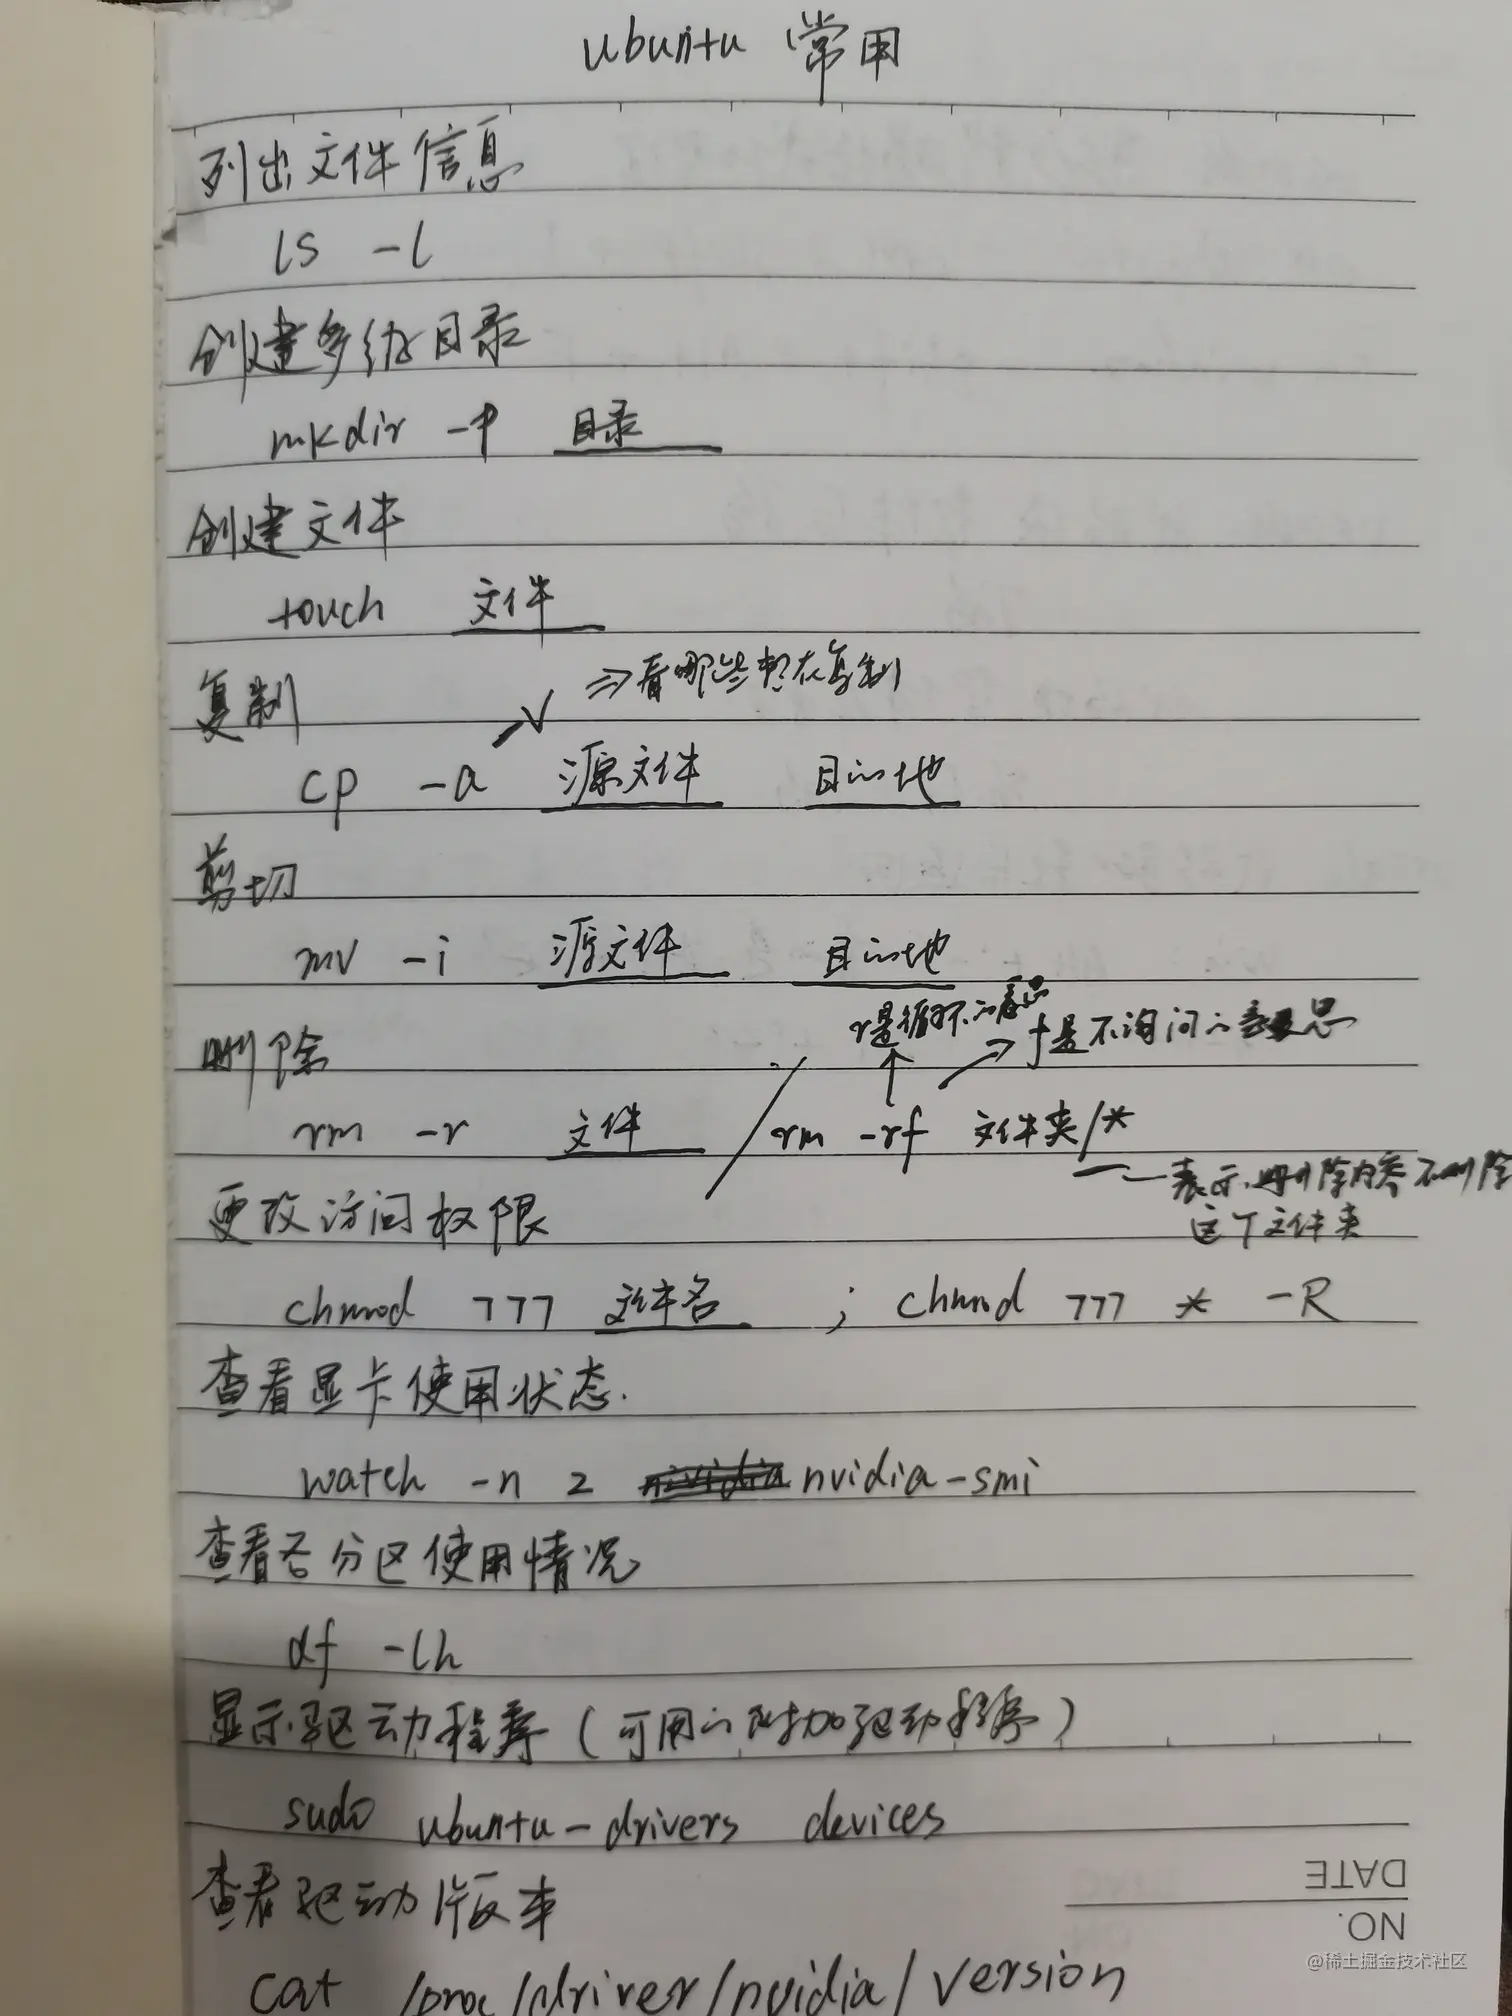 ubuntu 常用
列出文件信息
ls -l
创建多级目录
mkdir -p 目录
创建文件
touch 文件
复制
v ⇒看哪些想在复制
cp -a 源文件 目的地
剪切
mv -i 源文件 目的地
r是循环的意思
删除
f是不询问的意思
rm -r 文件 / rm -rf 文件夹/*
表示删除内类不删除
这个文件夹
更改访问权限
chmod 777 文件名 ; chmod 777 * -R
查看显卡使用状态.
watch -n 2 nvidia-smi
查看各分区使用情况
df -lh
显示驱动程序(可用的附加驱动程序)
sudo ubuntu-drivers devices
查看驱动版本
cat /proc/driver/nvidia/version
DATE
NO.
@稀土掘金技术社区